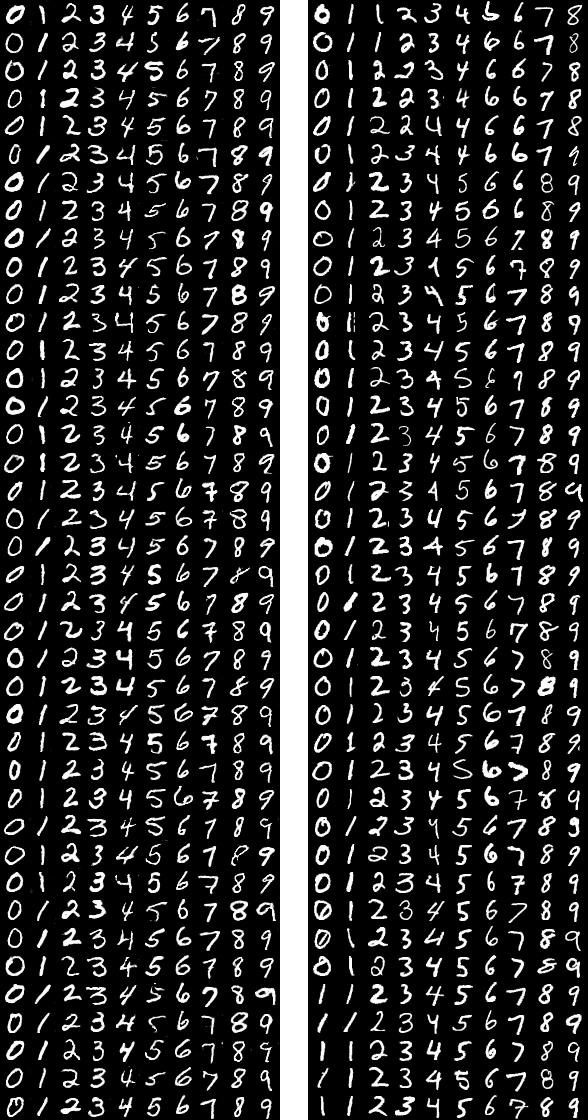 0 1 2 3 4 5 6 7 8 9
0 1 2 3 4 5 6 7 8 9
0 1 2 3 4 5 6 7 8 9
0 1 2 3 4 5 6 7 8 9
0 1 2 3 4 5 6 7 8 9
0 1 2 3 4 5 6 7 8 9
0 1 2 3 4 5 6 7 8 9
0 1 2 3 4 5 6 7 8 9
0 1 2 3 4 5 6 7 8 9
0 1 2 3 4 5 6 7 8 9
0 1 2 3 4 5 6 7 8 9
0 1 2 3 4 5 6 7 8 9
0 1 2 3 4 5 6 7 8 9
0 1 2 3 4 5 6 7 8 9
0 1 2 3 4 5 6 7 8 9
0 1 2 3 4 5 6 7 8 9
0 1 2 3 4 5 6 7 8 9
0 1 2 3 4 5 6 7 8 9
0 1 2 3 4 5 6 7 8 9
0 1 2 3 4 5 6 7 8 9
0 1 2 3 4 5 6 7 8 9
0 1 2 3 4 5 6 7 8 9
0 1 2 3 4 5 6 7 8 9
0 1 2 3 4 5 6 7 8 9
0 1 2 3 4 5 6 7 8 9
0 1 2 3 4 5 6 7 8 9
0 1 2 3 4 5 6 7 8 9
0 1 2 3 4 5 6 7 8 9
0 1 2 3 4 5 6 7 8 9
0 1 2 3 4 5 6 7 8 9
0 1 2 3 4 5 6 7 8 9
0 1 2 3 4 5 6 7 8 9
0 1 2 3 4 5 6 7 8 9
0 1 2 3 4 5 6 7 8 9
0 1 2 3 4 5 6 7 8 9
0 1 2 3 4 5 6 7 8 9
0 1 2 3 4 5 6 7 8 9
0 1 2 3 4 5 6 7 8 9
0 1 2 3 4 5 6 7 8 9
0 1 2 3 4 5 6 7 8 9
0 1 1 2 3 4 6 6 7 8
0 1 1 2 3 4 6 6 7 8
0 1 2 2 3 4 6 6 7 8
0 1 2 2 3 4 6 6 7 8
0 1 2 2 4 4 6 6 7 8
0 1 2 3 4 4 6 6 7 9
0 1 2 3 4 5 6 6 8 9
0 1 2 3 4 5 6 6 8 9
0 1 2 3 4 5 6 7 8 9
0 1 2 3 4 5 6 7 8 9
0 1 2 3 4 5 6 7 8 9
0 1 2 3 4 5 6 7 8 9
0 1 2 3 4 5 6 7 8 9
0 1 2 3 4 5 6 7 8 9
0 1 2 3 4 5 6 7 8 9
0 1 2 3 4 5 6 7 8 9
0 1 2 3 4 5 6 7 8 9
0 1 2 3 4 5 6 7 8 9
0 1 2 3 4 5 6 7 8 9
0 1 2 3 4 5 6 7 8 9
0 1 2 3 4 5 6 7 8 9
0 1 2 3 4 5 6 7 8 9
0 1 2 3 4 5 6 7 8 9
0 1 2 3 4 5 6 7 8 9
0 1 2 3 4 5 6 7 8 9
0 1 2 3 4 5 6 7 8 9
0 1 2 3 4 5 6 7 8 9
0 1 2 3 4 5 6 7 8 9
0 1 2 3 4 5 6 7 8 9
0 1 2 3 4 5 6 7 8 9
0 1 2 3 4 5 6 7 8 9
0 1 2 3 4 5 6 7 8 9
0 1 2 3 4 5 6 7 8 9
0 1 2 3 4 5 6 7 8 9
0 1 2 3 4 5 6 7 8 9
1 1 2 3 4 5 6 7 8 9
1 1 2 3 4 5 6 7 8 9
1 1 2 3 4 5 6 7 8 9
1 1 2 3 4 5 6 7 8 9
1 1 2 3 4 5 6 7 8 9